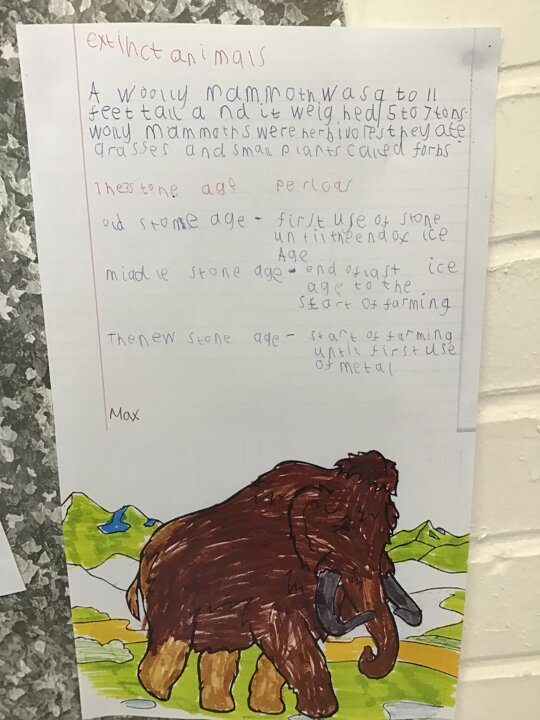 extinct animals
A woolly mammoth was 9 to 11
feet tall and it weighed 5 to 7 tons.
wolly mammoths were herbivores they ate
grasses and small plants called forbs
The 3 stone age periods
old stone age - first use of stone
until the end ox ice
Age
middle stone age - end of last ice
age to the
start of farming
The new stone age - start of farming
until first use
of metal
Max